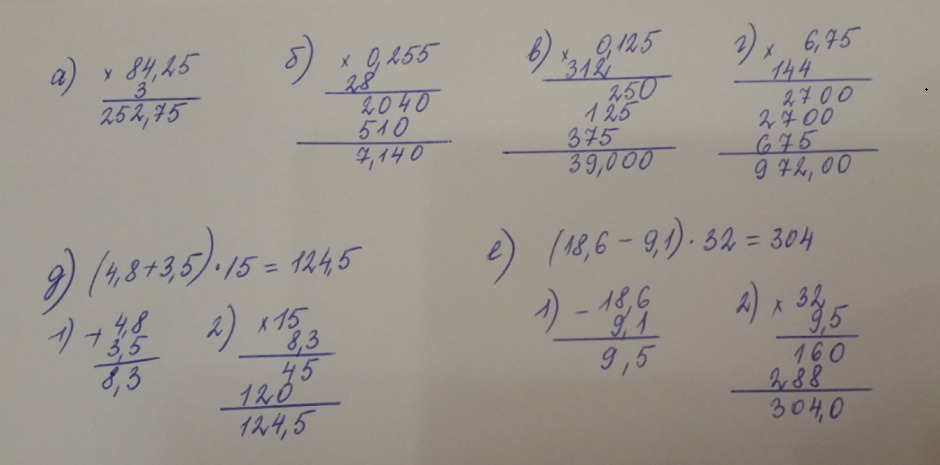 а) × 84,25
3
252,75
б) × 0,255
28
2040
510
7,140
в) × 0,125
312
250
125
375
39,000
г) × 6,75
144
2700
2700
675
972,00
д) (4,8+3,5)·15=124,5
1) + 4,8
3,5
8,3
2) × 15
8,3
45
120
124,5
е) (18,6-9,1)·32=304
1) - 18,6
9,1
9,5
2) × 32
9,5
160
288
304,0